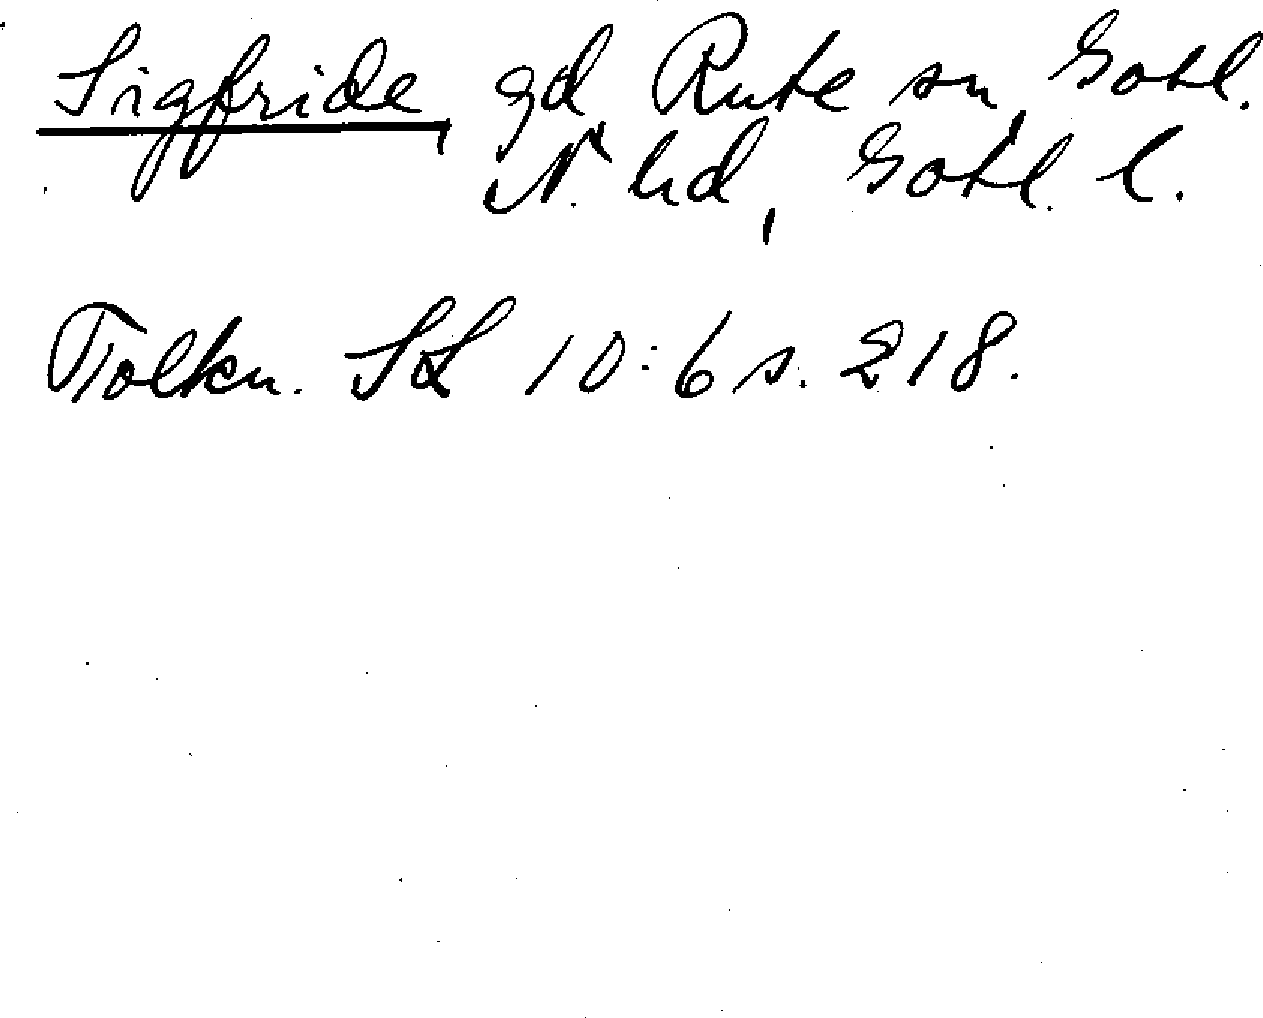 Sigfride, gd Rute sn, Gotl.
N. hd, Gotl. l.
Tolkn. SL 10:6 s. 218.